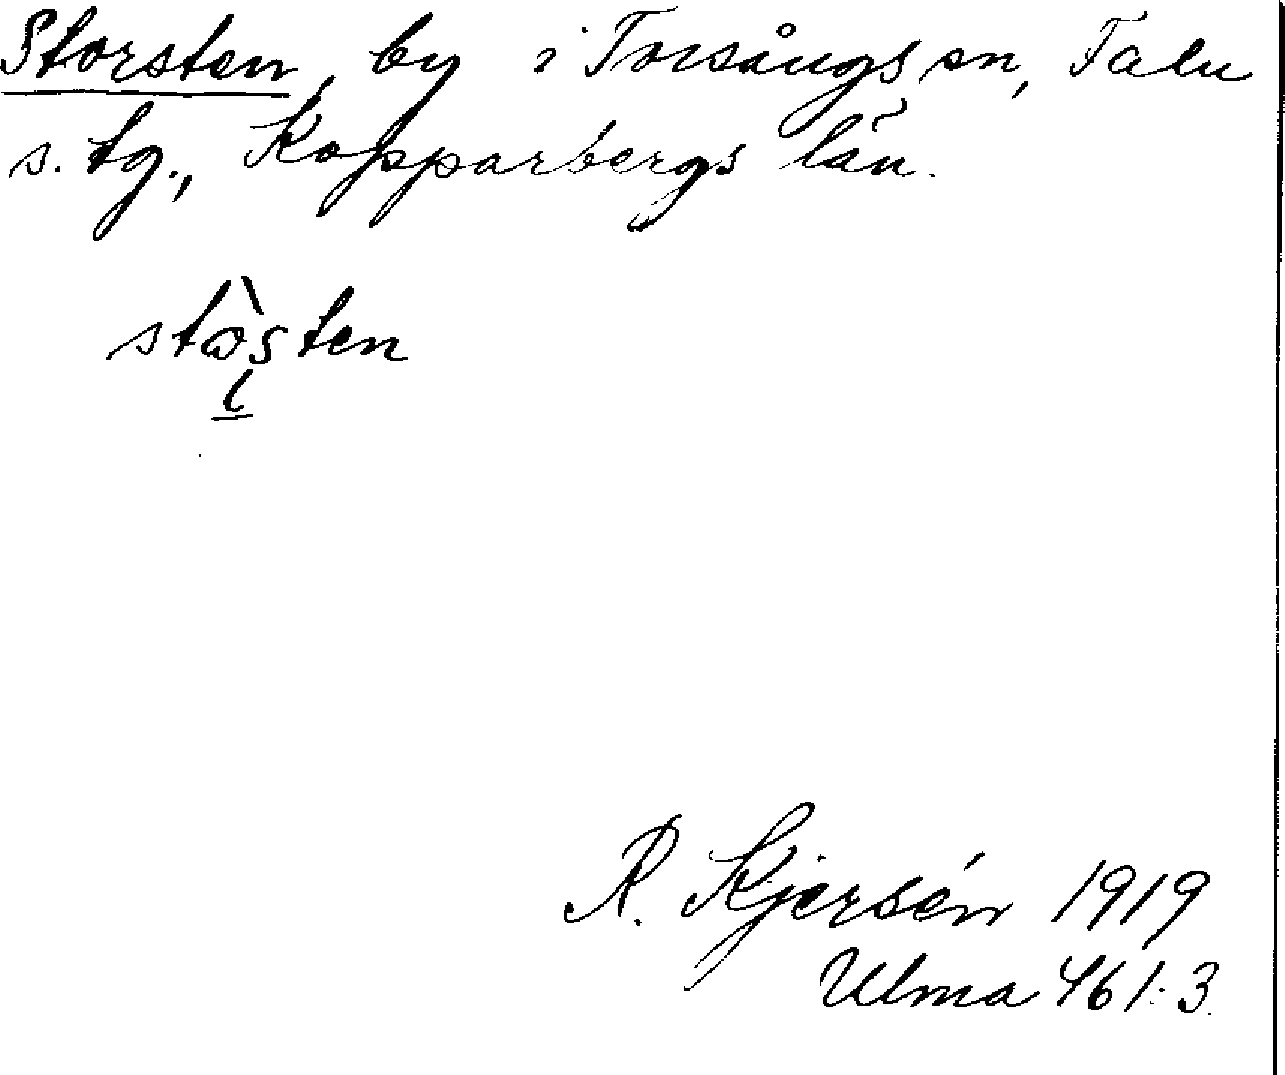 Storsten, by i Torsångs sn, Falu
s. tg., Kopparbergs län.
stɔ̀s̨ten
R. Kjersén 1919
Ulma 461:3.